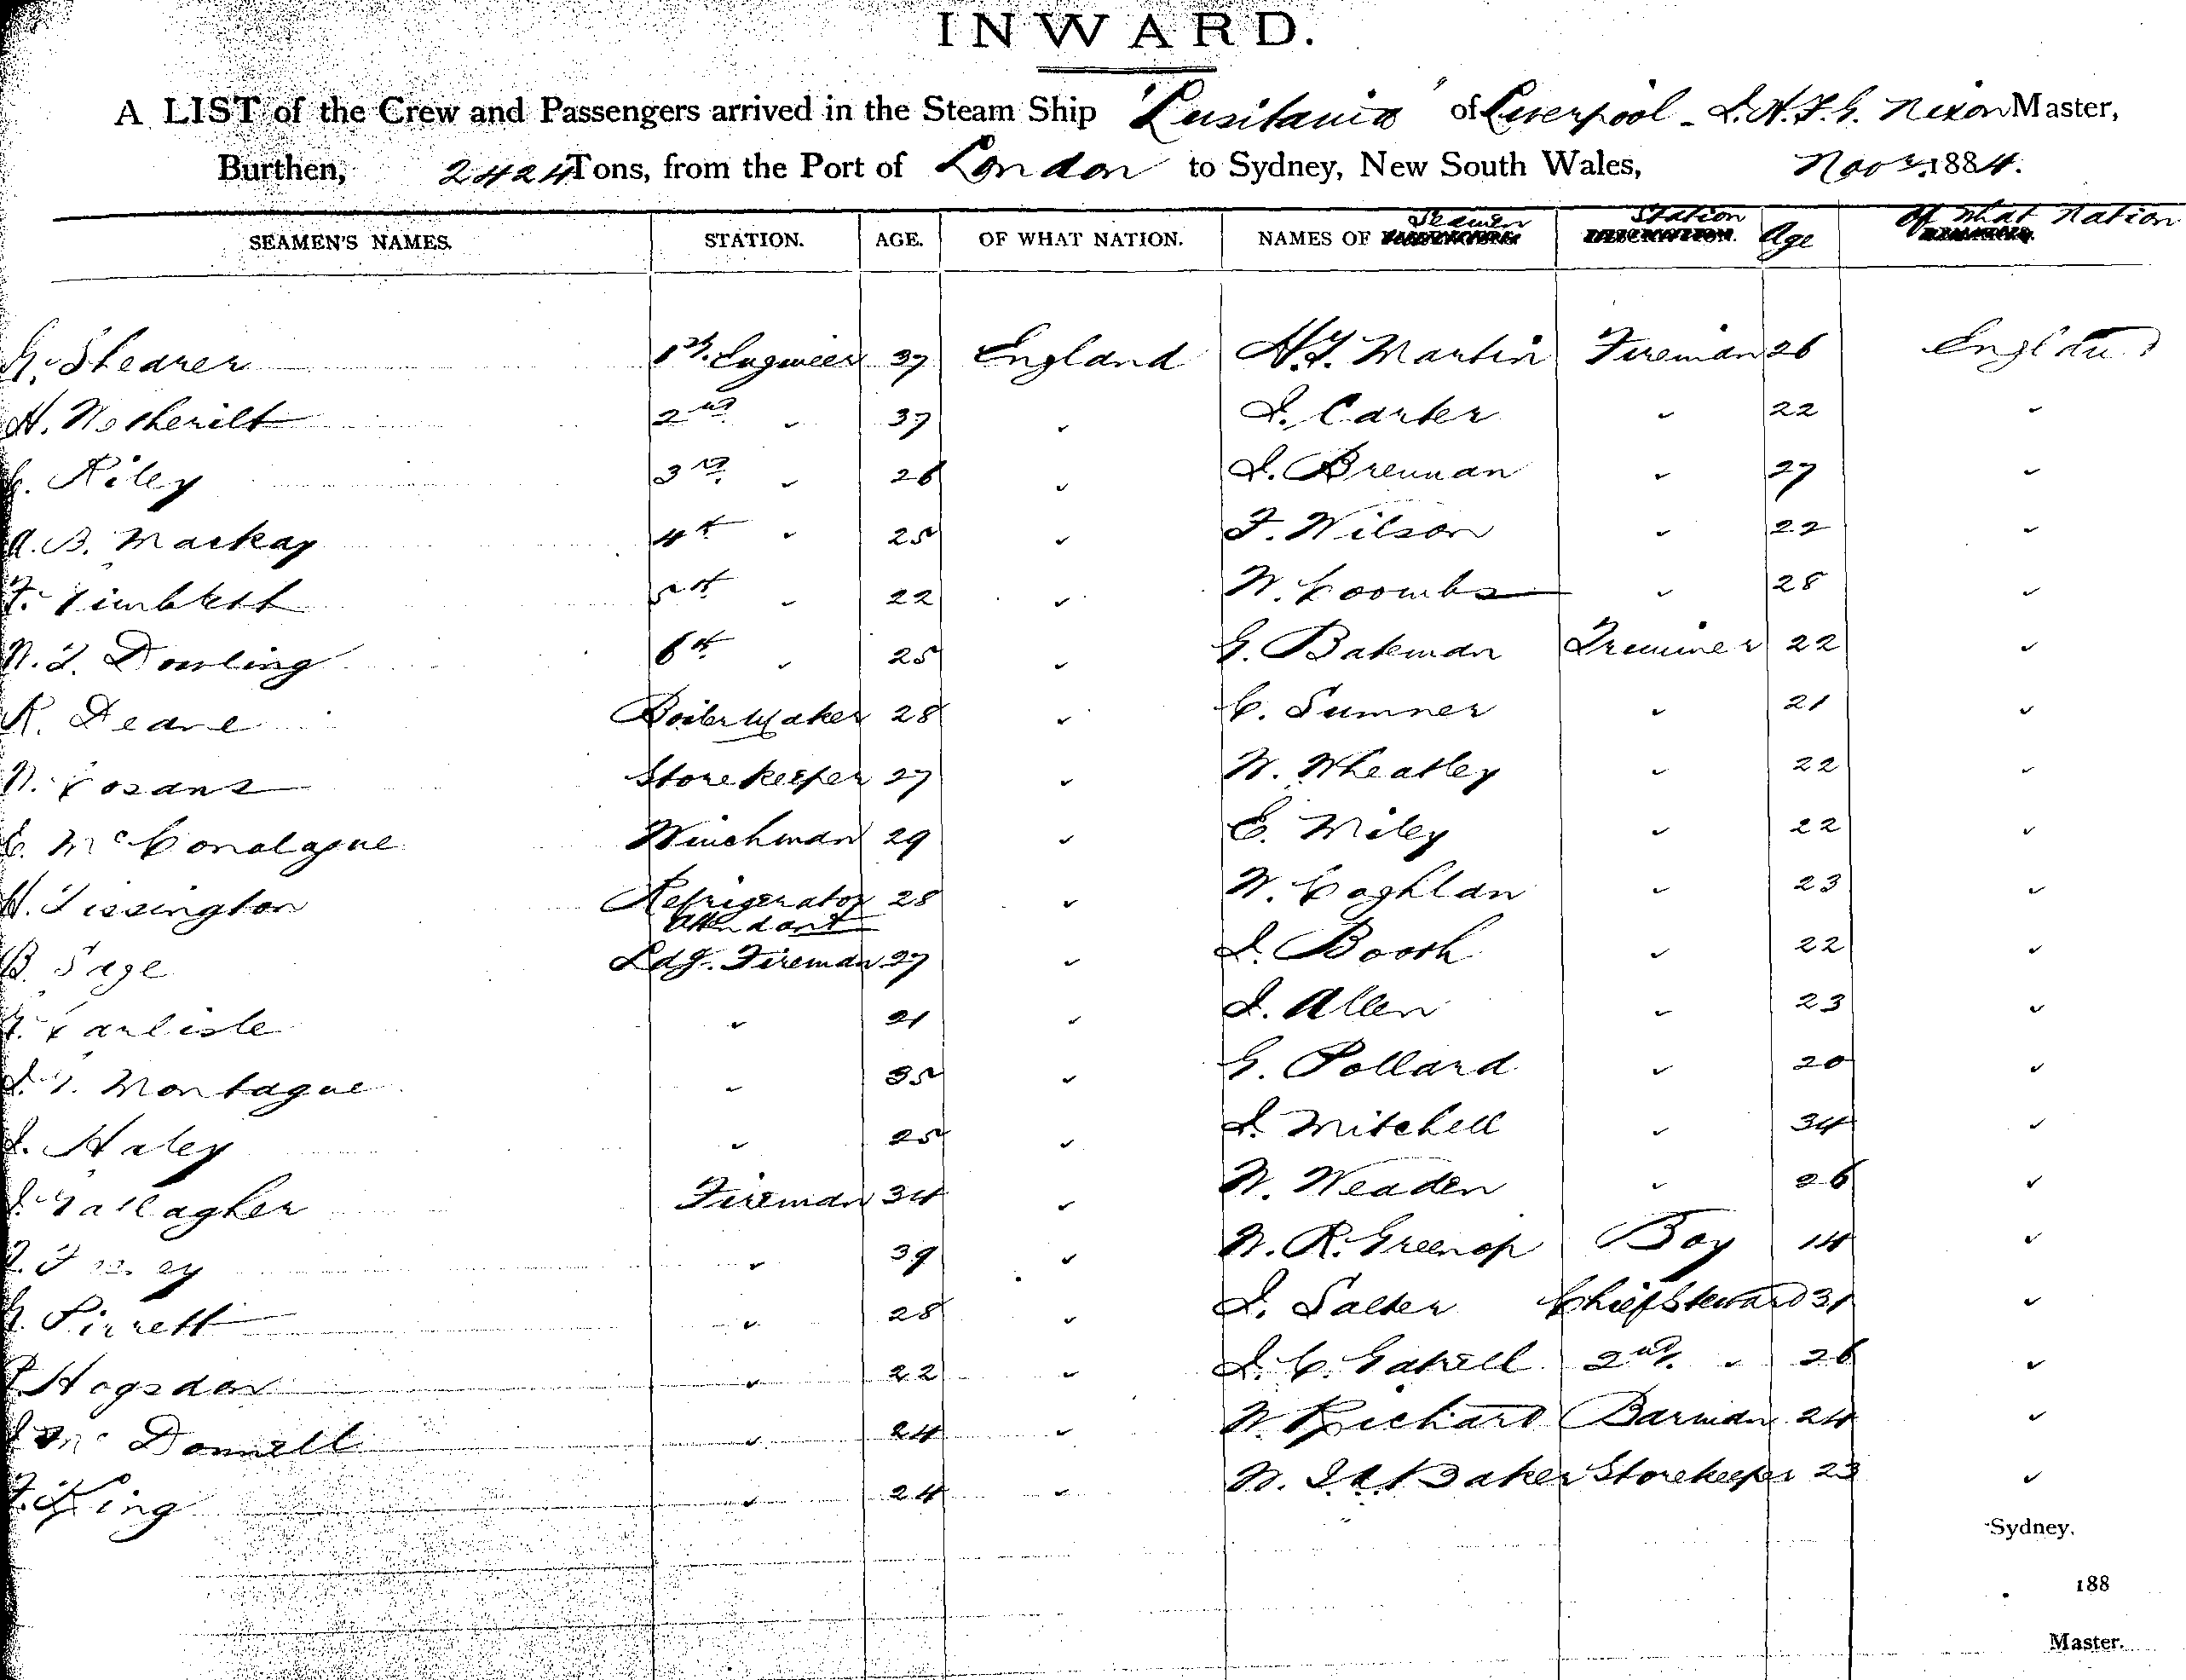 INWARD.
A LIST of the Crew and Passengers arrived in the Steam Ship "Lusitania" of Liverpool - J.H.F.G. Nixon Master,
Burthen, 2424 Tons, from the Port of London to Sydney, New South Wales, Nov 1884.
SEAMEN'S NAMES. STATION. AGE. OF WHAT NATION. NAMES OF Seamen Station Age Of What Nation
G. Shearer 1st. Engineer 37 England H.T. Martin Fireman 26 England
H. Netherilt 2nd " 37 " J. Carter " 22 "
Riley 3rd " 26 " J. Brennan " 27 "
A.B. Mackay 4th " 25 " F. Wilson " 22 "
F. 5th " 22 " W. Coombs " 28 "
Dowling 6th " 25 " G. Bateman Trimmer 22 "
R. Deane Boiler Maker 28 " C. Sumner " 21 "
Storekeeper 27 " W. Wheatley " 22 "
E. McConalogue Winchman 29 " E. Miley " 22 "
H. Tissington Refrigerator Attendant 28 " W. Coghlan " 23 "
B. Sage Ldg. Fireman 27 " J. Booth " 22 "
Carlisle " 21 " J. Allen " 23 "
J.T. Montague " 35 " G. Pollard " 20 "
J. Haley " 25 " J. Mitchell " 34 "
J. Gallagher Fireman 34 " W. Weaden " 26 "
" 39 " W. R. Greenop Boy 14 "
G. Pirrett " 28 " J. Salter Chief Steward 31 "
P. Hogsdon " 22 " J. C. Gatrell 2nd. " 26 "
J. McDonnell " 24 " W. Prichard Barman 24 "
F. King " 24 " W. Baker Storekeeper 23 "
Sydney.
188
Master.